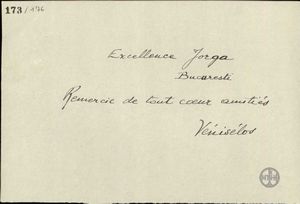 173/176
Excellence Jorga
Bucaresti
Remercie de tout cœur amitiés
Vénisélos